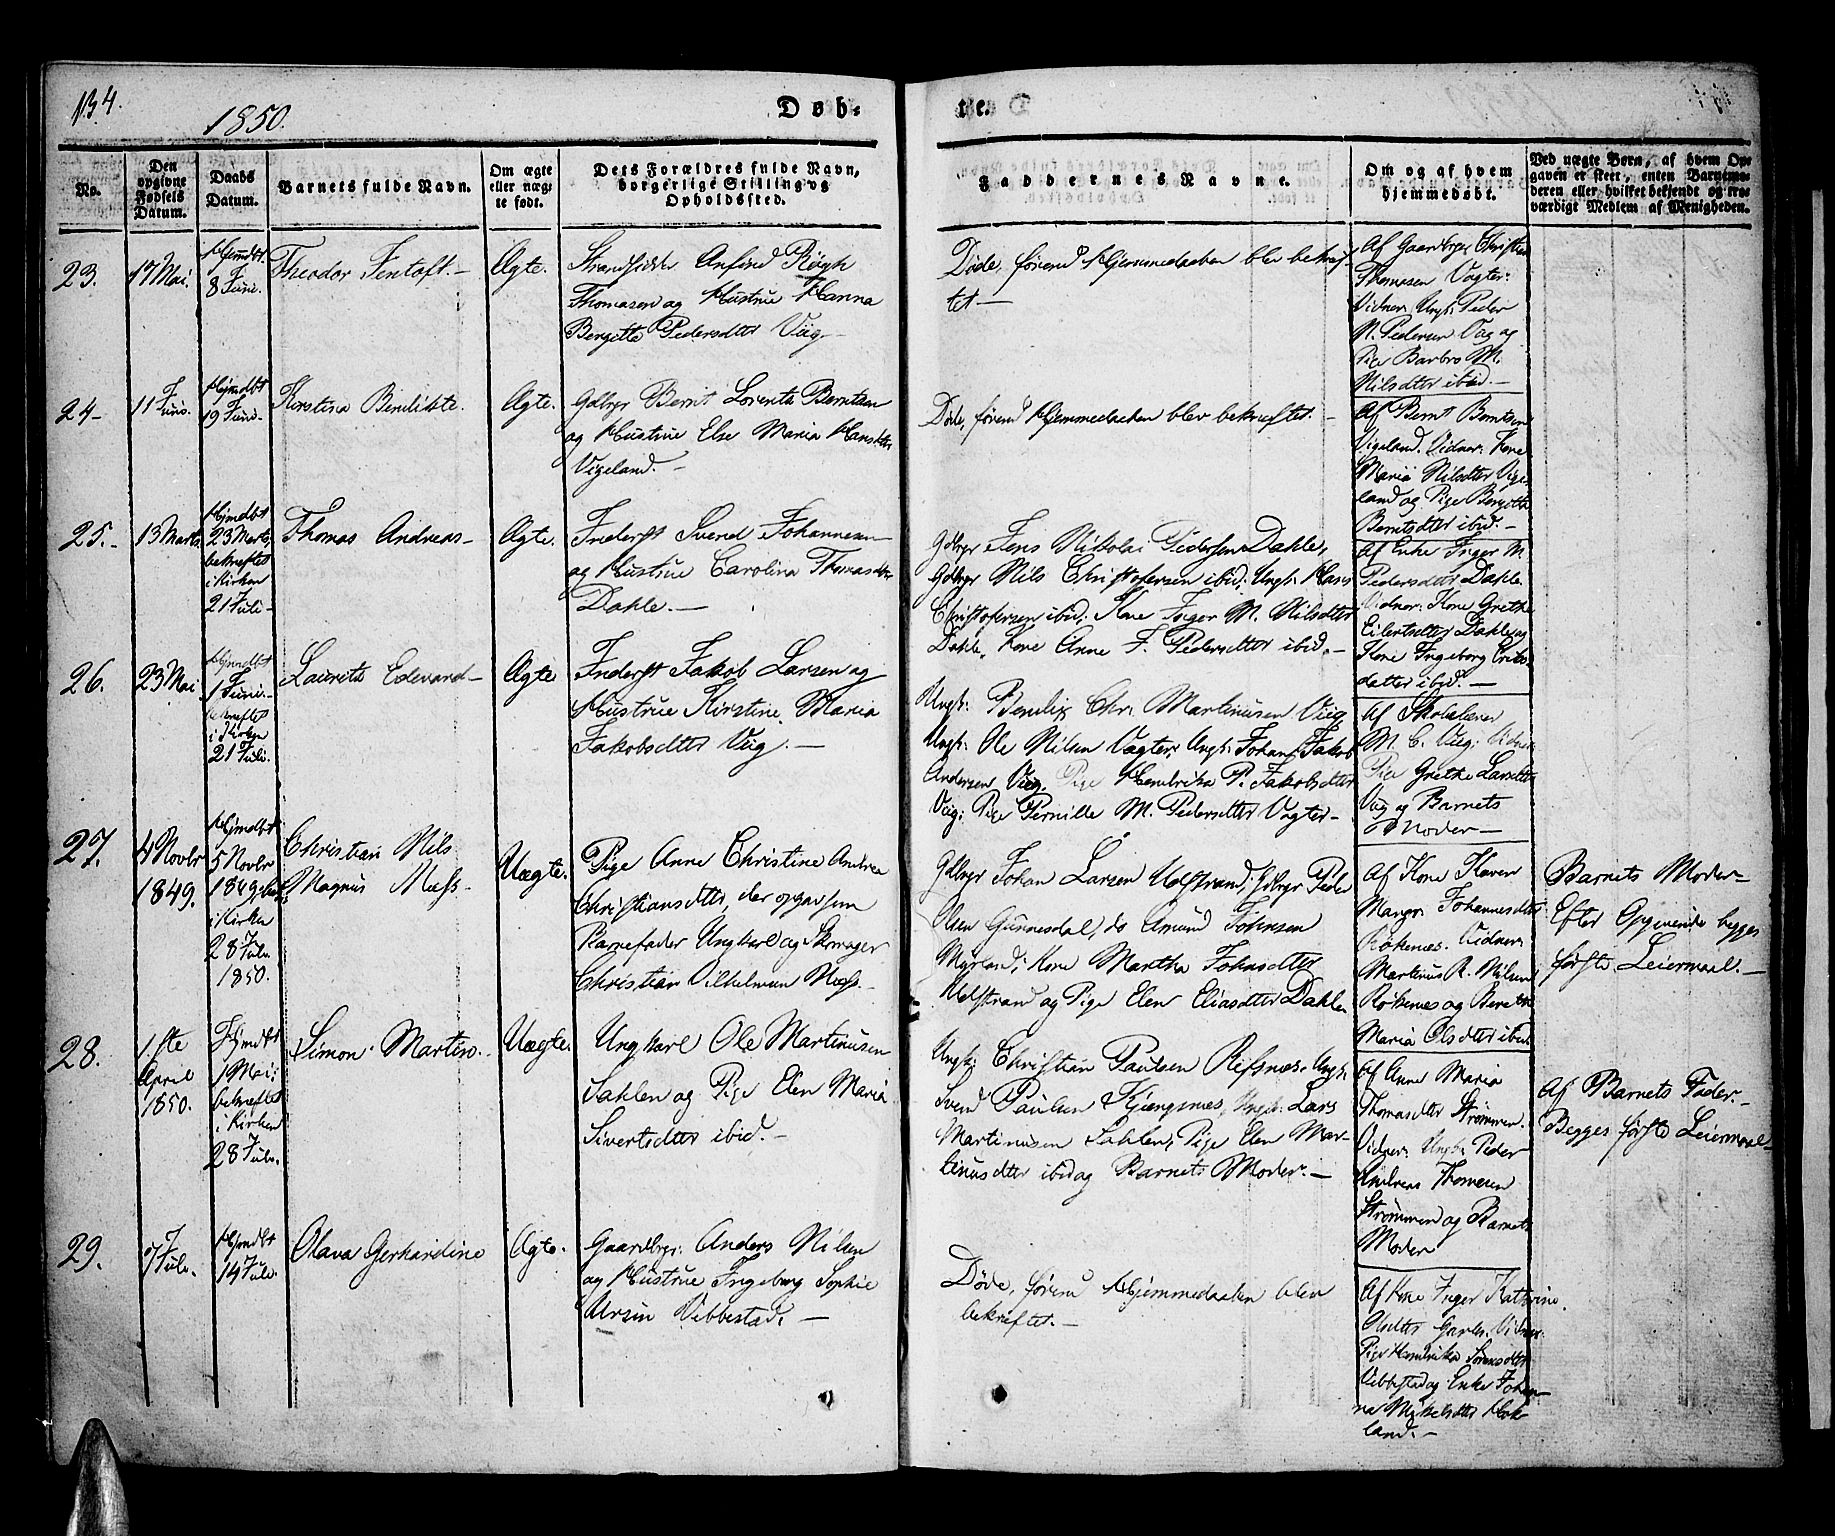 134.
1850.
Døb-
te.
No.
Den opgivne Fødsels Datum.
Daabs Datum.
Barnets fulde Navn.
Om ægte eller uægte født.
Dets Forældres fulde Navn, borgerlige Stilling og Opholdssted.
Faddernes Navne.
Om og af hvem hjemmedøbt.
Ved uægte Børn, af hvem Opgaven er skeet, enten Barnemoderen eller hvilket bekjendt og troværdigt Medlem af Menigheden.
23.
17 Mai.
Hjmdbt
8 Juni.
Theodor Jentoft.-
Ægte.
Strandsidder Anfind Røgh
Thomasen og Hustrue Hanna
Bergitte Pedersdtter Viig.-
Døde, førend Hjemmedaaben blev bekræf-
tet.-
Af Gaardbrger Christen
Thomasen Vogter:
Vidner Ungk: Peder
N. Pedersen Vag og
Pige Barbro M.
Nilsdtter ibid.-
24-
11 Juni.
Hjmdbt
19 Juni.
Kirstina Bendikte.
Ægte.
Gdbrgr Bernt Lorents Berntsen
og Hustrue Else Maria Hansdtter
Vigeland.-
Døde, førend Hjemmedaaben blev bekræftet.-
Af Bernt Berntsen
Vigeland. Vidner: Kone
Maria Nilsdtter Vige-
land og Pige Bergitta
Berntsdtter ibid.-
25.-
13 Marts.
Hjmdbt
23 Marts,
bekræftet
i Kirken
21 Juli-
Thomas Andreas-
Ægte.
Inderst Svend Johannesen
og Hustrue Carolina Thomasdtter
Dahle.-
Gdbrgr Jens Nikolai Pedersen Dahle,
Gdbrgr Nils Christofersen ibid; Ungk: Hans
Christofersen ibid; Kone Inger M. Nilsdtter
Dahle, Kone Anne J. Pedersdtter ibid.-
Af Enke Inger M.
Pedersdtter Dahle.
Vidner: Kone Grethe
Eilertsdtter Dahle og
Kone Ingeborg Eriks-
datter ibid.-
26.
23 Mai
Hjmdbt
1 Juni-
bekræftet
i Kirken
21 Juli.
Laurits Edevard-
Ægte
Inderst Jakob Larsen og
Hustrue Kirstine Maria
Jakobsdtter Viig.-
Ungk: Bendix Chr. Martinusen Viig
Ungk: Ole Nilsen Vogter; Ungk: Johan Jakob
Andersen Viig. Pige Hendrika P. Jakobsdtter
Viig; Pige Pernille M. Pedersdtter Vogter-
Af Skolelærer
M. C. Viig; Vidner
Pige Grethe Larsdtter
Vag og Barnets
Moder-
27.
4 Novbr
1849.
Hjmdbt
5 Novbr
1849, bek:
i Kirken
28 Juli.
1850.
Christian Nils
Magnus Næss.
Uægte.
Pige Anne Christine Andrea
Christiansdtter, der opgav som
Barnefader Ungkarl og Skomager
Christian Vilhelmsen Næss.
Gdbrgr Johan Larsen Uolstrand, Gdbrgr Peder
Olsen Gunnesdal, do Amund Johnsen
Myrland; Kone Martha Johnsdtter
Uolstrand og Pige Elen Eliasdtter Dahle
Af Kone Karen
Margr. Johannesdtter
Røkenæs. Vidner
Martinus R. Nilsen
Røkenæs og Berethe
Maria Olsdtter ibid.
Barnets Moder-
Efter Opgivende begges
første Leiermaal.-
28.
1.ste
April
1850.
Hjmdbt
1 Mai;
bekræftet
i Kirken
28 Juli.
Simon Martin.
Uægte.
Ungkarl Ole Martinusen
Sahlen og Pige Elen Maria
Sivertsdtter ibid.-
Ungk: Christian Paulsen Refsnæs. Ungk:
Svend Paulsen Kjengsnæs, Ungk: Lars
Martinusen Sahlen, Pige Elen Mar-
tinusdtter ibid og Barnets Moder.-
Af Anne Maria
Thomasdtter Strømmen.
Vidner: Ungk: Peder
Andreas Thomesen
Strømmen og Barnets
Moder
Af Barnets Fader.-
Begges første Leiermaal-
29.
7 Juli.
Hjmdbt
14 Juli.
Olava Gerhardine
Ægte.
Gaardbrgr: Anders Nilsen
og Hustrue Ingeborg Sophie
Ursin Vebbestad.-
Døde, førend Hjemmedaaben blev
bekræftet.-
Af Kone Inger Kathrine
Vidner:
Pige Hendrika Sørensdtter
Vebbestad og Enke Johan-
na Mykelsdtter Hok-
land.-